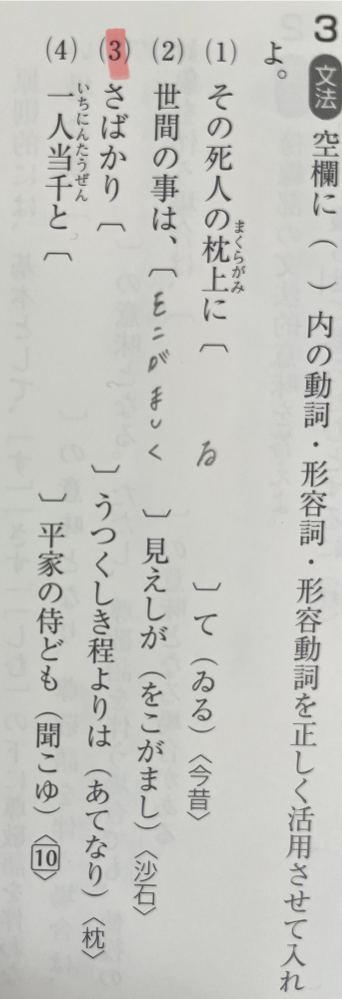 3 文法 空欄に（ ）内の動詞・形容詞・形容動詞を正しく活用させて入れ
よ。
(1) その死人の枕上に〔 ゐ 〕て（ゐる）〈今昔〉
まくらがみ
(2) 世間の事は、〔をこがましく〕見えしが（をこがまし）〈沙石〉
(3) さばかり〔 〕うつくしき程よりは（あてなり）〈枕〉
(4) 一人当千と〔 〕平家の侍ども（聞こゆ）〈10〉
いちにんたうぜん